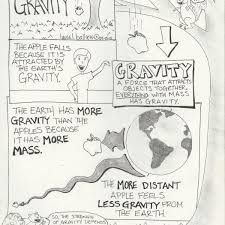 GRAVITY
THE APPLE FALLS
BECAUSE IT IS
ATTRACTED BY
THE EARTH'S
GRAVITY.
GRAVITY
A FORCE THAT ATTRACTS
OBJECTS TOGETHER.
EVERYTHING WITH MASS
HAS GRAVITY.
THE EARTH HAS MORE
GRAVITY THAN THE
APPLES BECAUSE
IT HAS MORE
MASS.
THE MORE DISTANT
APPLE FEELS
LESS GRAVITY FROM
THE EARTH.
SO, THE STRENGTH
OF GRAVITY DEPENDS